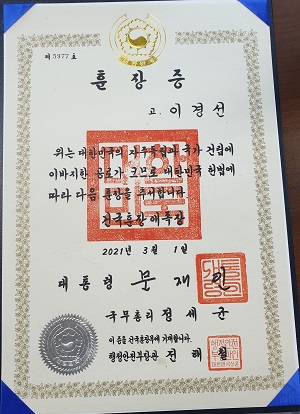 제5977호
훈장증
고 이경선
위는 대한민국의 자주독립과 국가 건립에
이바지한 공로가 크므로 대한민국 헌법에
따라 다음 훈장을 추서합니다
건국훈장 애족장
2021년 3월 1일
대통령 문재인
국무총리 정세균
이 증을 건국훈장부에 기재합니다.
행정안전부장관 전해철